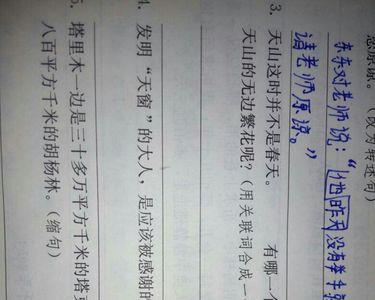 您原谅。（改为转述句）
东东对老师说：“他昨天没有举手
请老师原谅。”
3. 天山这时并不是春天。 有哪一个
天山的无边繁花呢？（用关联词合成一
4. 发明“天窗”的大人，是应该被感谢的
5. 塔里木一边是三十多万平方千米的塔克
八百平方千米的胡杨林。（缩句）